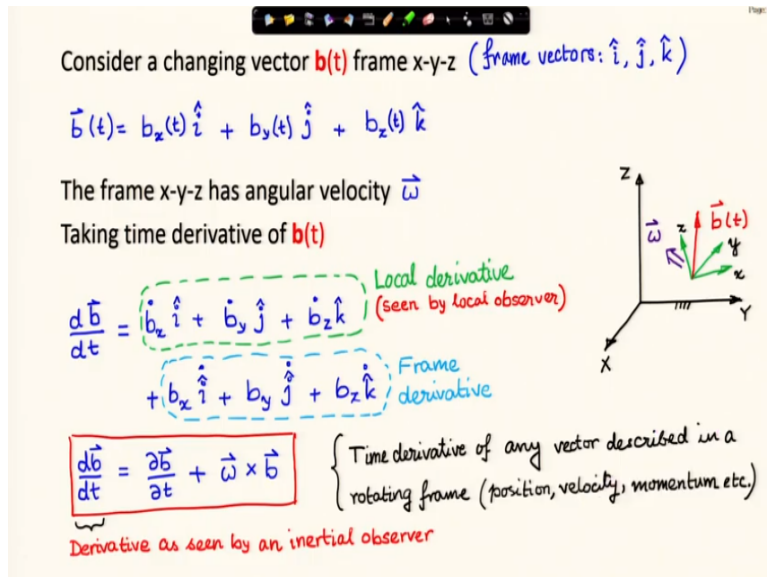 Page:
Consider a changing vector b(t) frame x-y-z (frame vectors: î, ĵ, k̂)
b⃗(t) = bₓ(t) î + b_y(t) ĵ + b_z(t) k̂
The frame x-y-z has angular velocity ω⃗
Taking time derivative of b(t)
Z
ω⃗
z
b⃗(t)
y
x
Y
X
Local derivative
(seen by local observer)
db⃗/dt = ḃₓ î + ḃ_y ĵ + ḃ_z k̂
Frame
derivative
+ bₓ î̇ + b_y ĵ̇ + b_z k̂̇
db⃗/dt = ∂b⃗/∂t + ω⃗ × b⃗
{ Time derivative of any vector described in a
rotating frame (position, velocity, momentum etc.)
Derivative as seen by an inertial observer